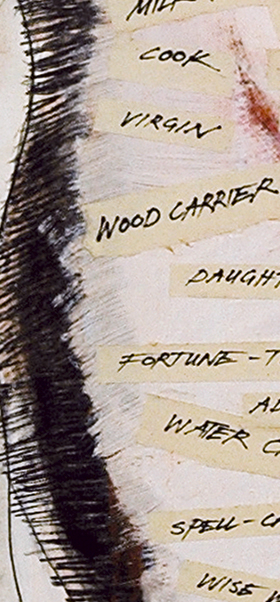 MILK
COOK
VIRGIN
WOOD CARRIER
DAUGHT
FORTUNE - T
WATER C
SPELL-C
WISE